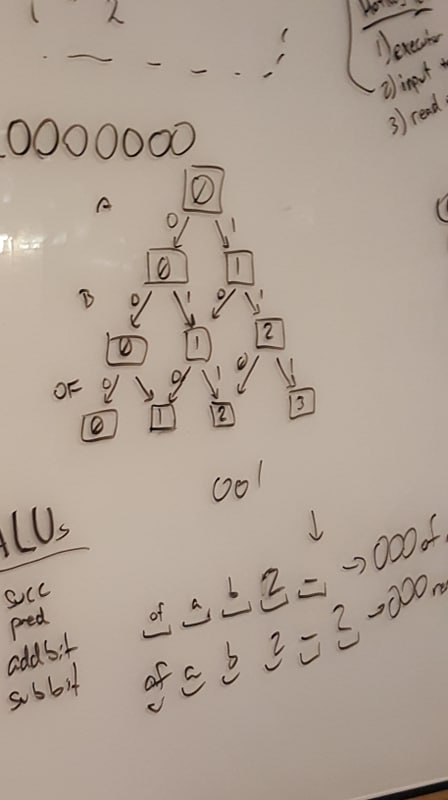 1 2
1) executor
2) input
3) read
0000000
A
0
0 1
0 1
B
0 1 0 1
0 1 2
OF
0 0 1 0 1
0 1 2 3
001
ALUs
succ
pred
addbit
subbit
of a b 2 = → 000 of
of a b 2 = 2 → 000